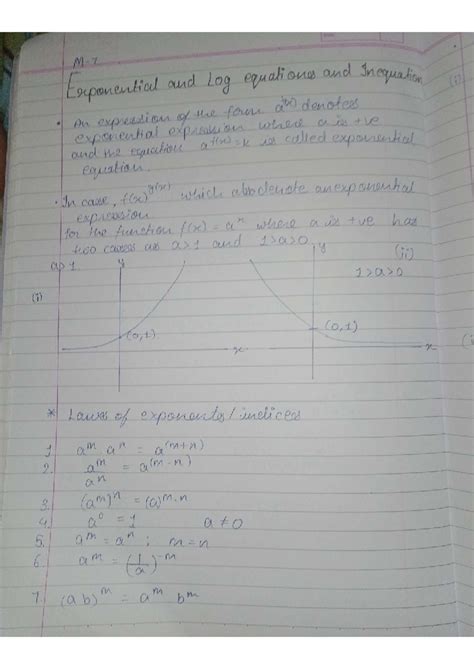 M-7
Exponential and Log equations and Inequation
• An expression of the form a^f(x) denotes
exponential expression where a is +ve
and the equation a^f(x) = k is called exponential
equation.
• In case, f(x)^g(x) which also denote an exponential
expression
for the function f(x) = a^x where a is +ve has
two cases as a>1 and 1>a>0.
a>1 y y (ii)
1>a>0
(i)
(0,1) (0,1)
x x
* Laws of exponents/indices
1. a^m . a^n = a^(m+n)
2. a^m/a^n = a^(m-n)
3. (a^m)^n = (a)^m.n
4. a^0 = 1 a ≠ 0
5. a^m = a^n ; m = n
6. a^m = (1/a)^-m
7. (ab)^m = a^m b^m